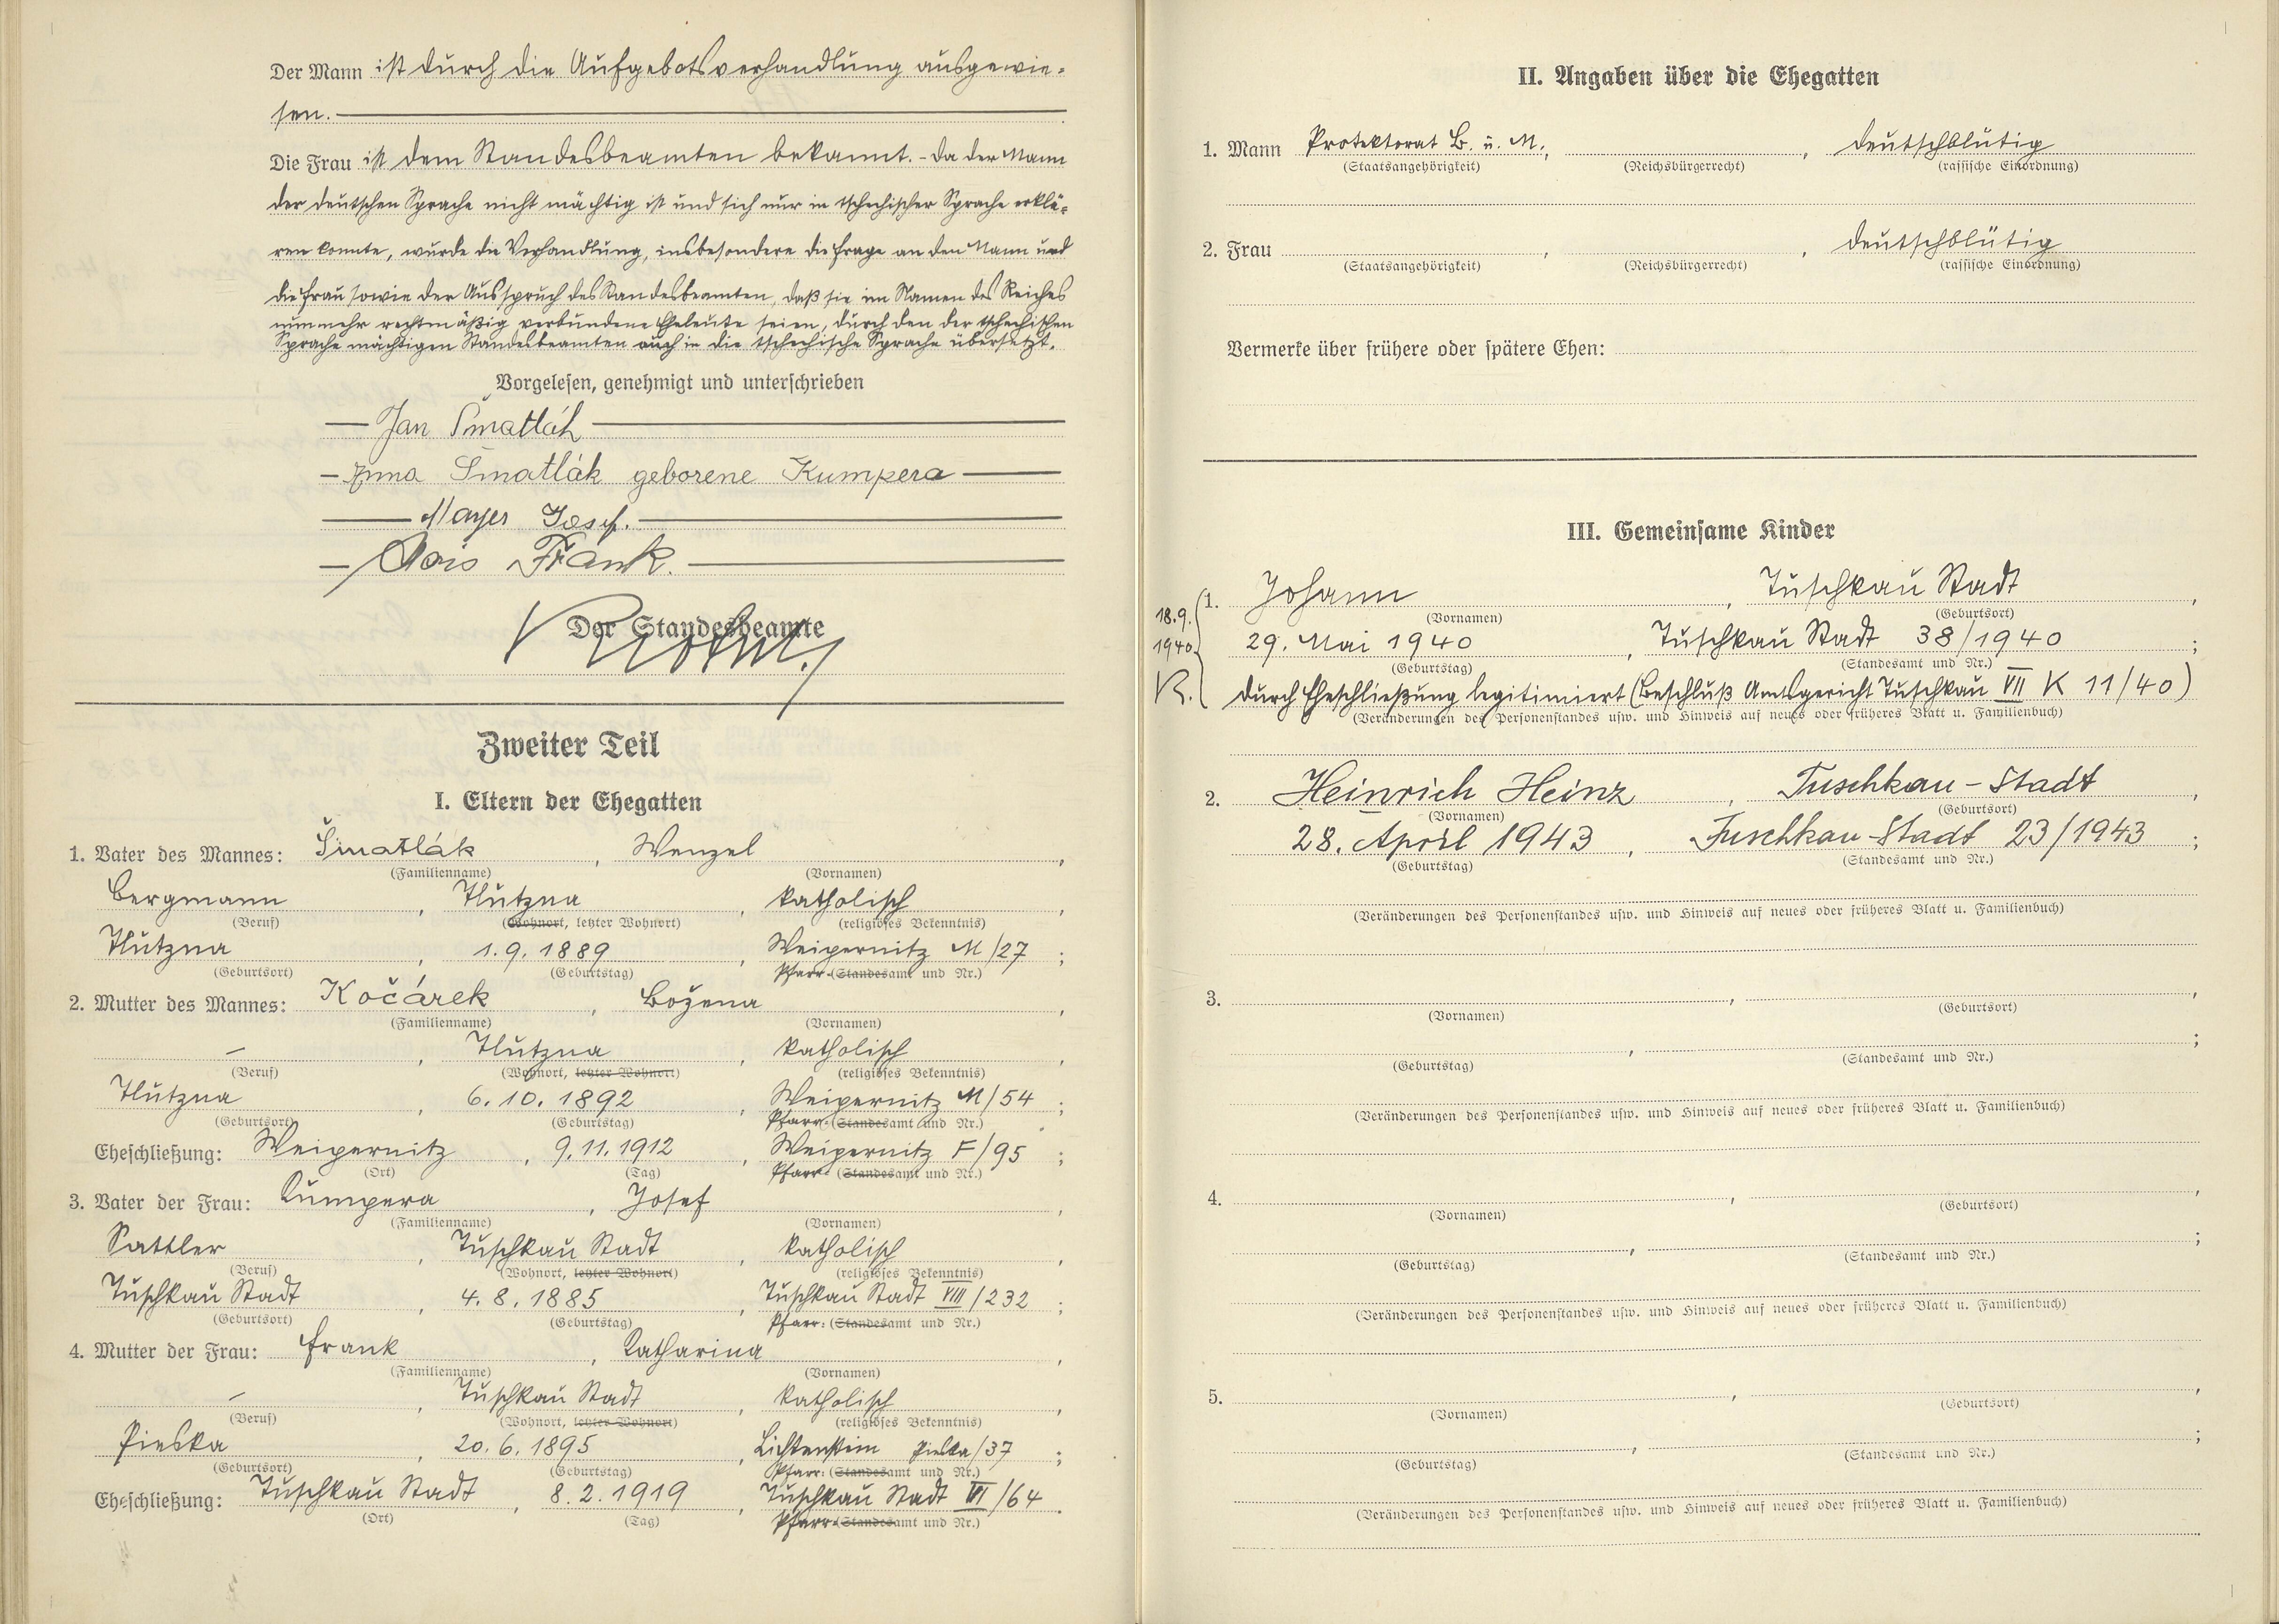 Der Mann ist durch die Aufgebotsverhandlung ausgewie-
sen.
Die Frau ist dem Standesbeamten bekannt. - Da der Mann
der deutschen Sprache nicht mächtig ist und sich nur in tschechischer Sprache erklä-
ren konnte, wurde die Verhandlung, insbesondere die Frage an den Mann und
die Frau sowie der Ausspruch des Standesbeamten, daß sie im Namen des Reiches
nunmehr rechtmäßig verbundene Eheleute seien, durch den der tschechischen
Sprache mächtigen Standesbeamten auch in die tschechische Sprache übersetzt.
Vorgelesen, genehmigt und unterschrieben
Jan Šmatlák
Anna Šmatlák geborene Kumpera
Mayer Josef.
Alois Frank.
Der Standesbeamte
Zweiter Teil
I. Eltern der Ehegatten
1. Vater des Mannes: Šmatlák, Wenzel,
(Familienname) (Vornamen)
Bergmann, Tlutzna, katholisch,
(Beruf) (Wohnort, letzter Wohnort) (religiöses Bekenntnis)
Tlutzna, 1.9.1889, Weipernitz M/27;
(Geburtsort) (Geburtstag) Pfarr-(Standesamt und Nr.)
2. Mutter des Mannes: Kočárek, Božena,
(Familienname) (Vornamen)
—, Tlutzna, katholisch,
(Beruf) (Wohnort, letzter Wohnort) (religiöses Bekenntnis)
Tlutzna, 6.10.1892, Weipernitz M/54;
(Geburtsort) (Geburtstag) Pfarr-(Standesamt und Nr.)
Eheschließung: Weipernitz, 9.11.1912, Weipernitz F/95;
(Ort) (Tag) Pfarr-(Standesamt und Nr.)
3. Vater der Frau: Kumpera, Josef,
(Familienname) (Vornamen)
Sattler, Tuschkau Stadt, katholisch,
(Beruf) (Wohnort, letzter Wohnort) (religiöses Bekenntnis)
Tuschkau Stadt, 4.8.1885, Tuschkau Stadt VIII/232;
(Geburtsort) (Geburtstag) Pfarr-(Standesamt und Nr.)
4. Mutter der Frau: Frank, Katharina,
(Familienname) (Vornamen)
—, Tuschkau Stadt, katholisch,
(Beruf) (Wohnort, letzter Wohnort) (religiöses Bekenntnis)
Pieska, 20.6.1895, Lichtenstein Pieska/37;
(Geburtsort) (Geburtstag) Pfarr-(Standesamt und Nr.)
Eheschließung: Tuschkau Stadt, 8.2.1919, Tuschkau Stadt VI/64.
(Ort) (Tag) Pfarr-(Standesamt und Nr.)
II. Angaben über die Ehegatten
1. Mann Protektorat B. u. M., , deutschblütig
(Staatsangehörigkeit) (Reichsbürgerrecht) (rassische Einordnung)
2. Frau , , deutschblütig
(Staatsangehörigkeit) (Reichsbürgerrecht) (rassische Einordnung)
Vermerke über frühere oder spätere Ehen:
III. Gemeinsame Kinder
1. Johann, Tuschkau Stadt,
(Vornamen) (Geburtsort)
18.9.
1940.
29. Mai 1940, Tuschkau Stadt 38/1940;
(Geburtstag) (Standesamt und Nr.)
durch Eheschließung legitimiert (Beschluß Amtsgericht Tuschkau VII K 11/40)
(Veränderungen des Personenstandes usw. und Hinweis auf neues oder früheres Blatt u. Familienbuch)
2. Heinrich Heinz, Tuschkau-Stadt,
(Vornamen) (Geburtsort)
28. April 1943, Tuschkau-Stadt 23/1943;
(Geburtstag) (Standesamt und Nr.)
(Veränderungen des Personenstandes usw. und Hinweis auf neues oder früheres Blatt u. Familienbuch)
3. , ,
(Vornamen) (Geburtsort)
, ;
(Geburtstag) (Standesamt und Nr.)
(Veränderungen des Personenstandes usw. und Hinweis auf neues oder früheres Blatt u. Familienbuch)
4. , ,
(Vornamen) (Geburtsort)
, ;
(Geburtstag) (Standesamt und Nr.)
(Veränderungen des Personenstandes usw. und Hinweis auf neues oder früheres Blatt u. Familienbuch)
5. , ,
(Vornamen) (Geburtsort)
, ;
(Geburtstag) (Standesamt und Nr.)
(Veränderungen des Personenstandes usw. und Hinweis auf neues oder früheres Blatt u. Familienbuch)